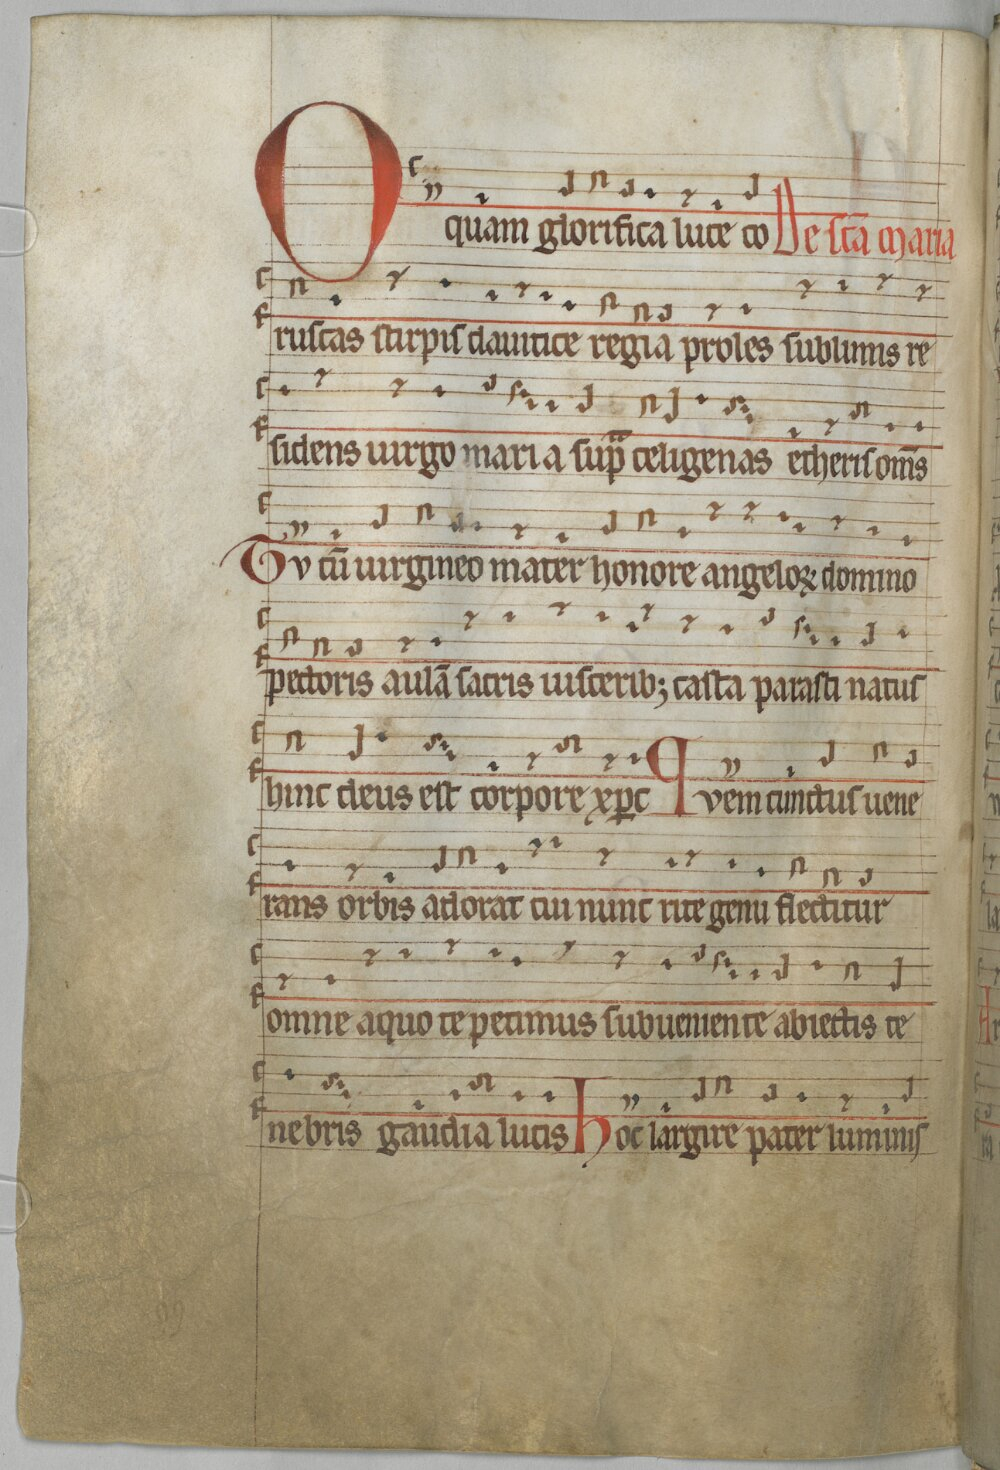 O quam glorifica luce co De scā maria
ruscas stirpis dauitice regia proles sublimis re
sidens uirgo maria sup̄ celigenas etheris om̄s
Tv cū uirgineo mater honore angeloꝝ domino
pectoris aulā sacris uisceribꝫ casta parasti natus
hinc deus est corpore xp̄c Qvem cunctus uene
rans orbis adorat cui nunc rite genu flectitur
omne aquo te petimus subueniente abiectis te
nebris gaudia lucis hoc largire pater luminis
99